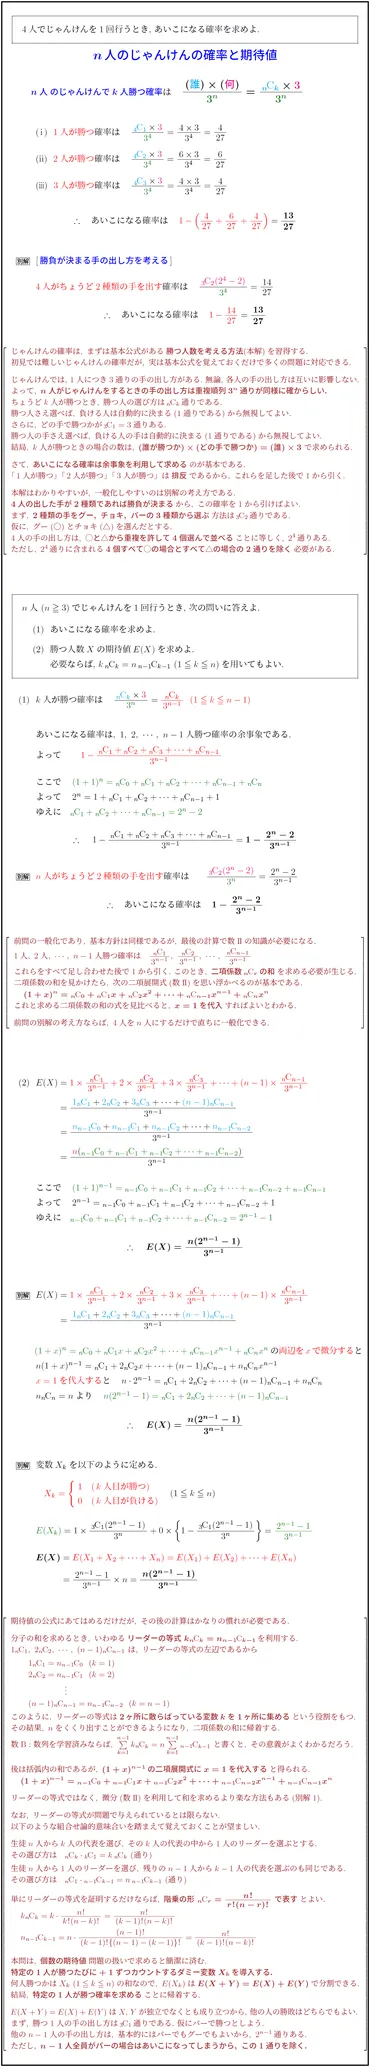 4人でじゃんけんを1回行うとき, あいこになる確率を求めよ.
n人のじゃんけんの確率と期待値
n人のじゃんけんでk人勝つ確率は (誰)×(何)/3^n = nCk×3/3^n
(i) 1人が勝つ確率は 4C1×3/3^4 = 4×3/3^4 = 4/27
(ii) 2人が勝つ確率は 4C2×3/3^4 = 6×3/3^4 = 6/27
(iii) 3人が勝つ確率は 4C3×3/3^4 = 4×3/3^4 = 4/27
∴ あいこになる確率は 1−(4/27+6/27+4/27) = 13/27
別解 [勝負が決まる手の出し方を考える]
4人がちょうど2種類の手を出す確率は 3C2(2^4−2)/3^4 = 14/27
∴ あいこになる確率は 1−14/27 = 13/27
じゃんけんの確率は, まずは基本公式がある勝つ人数を考える方法(本解)を習得する.
初見では難しいじゃんけんの確率だが, 実は基本公式を覚えておくだけで多くの問題に対応できる.
じゃんけんでは, 1人につき3通りの手の出し方がある. 無論, 各人の手の出し方は互いに影響しない.
よって, n人がじゃんけんをするときの手の出し方は重複順列3^n通りが同様に確からしい.
ちょうどk人が勝つとき, 勝つ人の選び方はnCk通りである.
勝つ人さえ選べば, 負ける人は自動的に決まる(1通りである)から無視してよい.
さらに, どの手で勝つかが3C1=3通りある.
勝つ人の手さえ選べば, 負ける人の手は自動的に決まる(1通りである)から無視してよい.
結局, k人が勝つときの場合の数は, (誰が勝つか)×(どの手で勝つか)=(誰)×3で求められる.
さて, あいこになる確率は余事象を利用して求めるのが基本である.
「1人が勝つ」「2人が勝つ」「3人が勝つ」は排反であるから, これらを足した後で1から引く.
本解はわかりやすいが, 一般化しやすいのは別解の考え方である.
4人の出した手が2種類であれば勝負が決まるから, この確率を1から引けばよい.
まず, 2種類の手をグー, チョキ, パーの3種類から選ぶ方法は3C2通りである.
仮に, グー(○)とチョキ(△)を選んだとする.
4人の手の出し方は, ○と△から重複を許して4個選んで並べることに等しく, 2^4通りある.
ただし, 2^4通りに含まれる4個すべて○の場合とすべて△の場合の2通りを除く必要がある.
n人(n≧3)でじゃんけんを1回行うとき, 次の問いに答えよ.
(1) あいこになる確率を求めよ.
(2) 勝つ人数Xの期待値E(X)を求めよ.
必要ならば, k nCk = n n−1Ck−1 (1≦k≦n)を用いてもよい.
(1) k人が勝つ確率は nCk×3/3^n = nCk/3^{n−1} (1≦k≦n−1)
あいこになる確率は, 1, 2, ⋯, n−1人勝つ確率の余事象である.
よって 1−(nC1+nC2+nC3+⋯+nCn−1)/3^{n−1}
ここで (1+1)^n = nC0+nC1+nC2+⋯+nCn−1+nCn
よって 2^n = 1+nC1+nC2+⋯+nCn−1+1
ゆえに nC1+nC2+⋯+nCn−1 = 2^n−2
∴ 1−(nC1+nC2+nC3+⋯+nCn−1)/3^{n−1} = 1−(2^n−2)/3^{n−1}
別解 n人がちょうど2種類の手を出す確率は 3C2(2^n−2)/3^n = (2^n−2)/3^{n−1}
∴ あいこになる確率は 1−(2^n−2)/3^{n−1}
前問の一般化であり, 基本方針は同様であるが, 最後の計算で数IIの知識が必要になる.
1人, 2人, ⋯, n−1人勝つ確率は nC1/3^{n−1}, nC2/3^{n−1}, ⋯, nCn−1/3^{n−1}
これらをすべて足し合わせた後で1から引く. このとき, 二項係数nCrの和を求める必要が生じる.
二項係数の和を見かけたら, 次の二項展開式(数II)を思い浮かべるのが基本である.
(1+x)^n = nC0+nC1x+nC2x^2+⋯+nCn−1x^{n−1}+nCnx^n
これと求める二項係数の和の式を見比べると, x=1を代入すればよいとわかる.
前問の別解の考え方ならば, 4人をn人にするだけで直ちに一般化できる.
(2) E(X) = 1×nC1/3^{n−1}+2×nC2/3^{n−1}+3×nC3/3^{n−1}+⋯+(n−1)×nCn−1/3^{n−1}
= (1nC1+2nC2+3nC3+⋯+(n−1)nCn−1)/3^{n−1}
= (n n−1C0+n n−1C1+n n−1C2+⋯+n n−1Cn−2)/3^{n−1}
= n(n−1C0+n−1C1+n−1C2+⋯+n−1Cn−2)/3^{n−1}
ここで (1+1)^{n−1} = n−1C0+n−1C1+n−1C2+⋯+n−1Cn−2+n−1Cn−1
よって 2^{n−1} = n−1C0+n−1C1+n−1C2+⋯+n−1Cn−2+1
ゆえに n−1C0+n−1C1+n−1C2+⋯+n−1Cn−2 = 2^{n−1}−1
∴ E(X) = n(2^{n−1}−1)/3^{n−1}
別解 E(X) = 1×nC1/3^{n−1}+2×nC2/3^{n−1}+3×nC3/3^{n−1}+⋯+(n−1)×nCn−1/3^{n−1}
= (1nC1+2nC2+3nC3+⋯+(n−1)nCn−1)/3^{n−1}
(1+x)^n = nC0+nC1x+nC2x^2+⋯+nCn−1x^{n−1}+nCnx^nの両辺をxで微分すると
n(1+x)^{n−1} = nC1+2nC2x+⋯+(n−1)nCn−1+nnCnx^{n−1}
x=1を代入すると n・2^{n−1} = nC1+2nC2+⋯+(n−1)nCn−1+nnCn
nnCn=nより n(2^{n−1}−1) = nC1+2nC2+⋯+(n−1)nCn−1
∴ E(X) = n(2^{n−1}−1)/3^{n−1}
別解 変数Xkを以下のように定める.
Xk = { 1 (k人目が勝つ)
0 (k人目が負ける) (1≦k≦n)
E(Xk) = 1×3C1(2^{n−1}−1)/3^n+0×{1−3C1(2^{n−1}−1)/3^n} = (2^{n−1}−1)/3^{n−1}
E(X) = E(X1+X2+⋯+Xn) = E(X1)+E(X2)+⋯+E(Xn)
= (2^{n−1}−1)/3^{n−1}×n = n(2^{n−1}−1)/3^{n−1}
期待値の公式にあてはめるだけだが, その後の計算はかなりの慣れが必要である.
分子の和を求めるとき, いわゆるリーダーの等式knCk=nn−1Ck−1を利用する.
1nC1, 2nC2, ⋯, (n−1)nCn−1は, リーダーの等式の左辺であるから
1nC1=nn−1C0 (k=1)
2nC2=nn−1C1 (k=2)
⋮
(n−1)nCn−1=nn−1Cn−2 (k=n−1)
このように, リーダーの等式は2ヶ所に散らばっている変数kを1ヶ所に集めるという役割をもつ.
その結果, nをくくり出すことができるようになり, 二項係数の和に帰着する.
数B:数列を学習済みならば, Σ[k=1→n−1] knCk = n Σ[k=1→n−1] n−1Ck−1と書くと, その意義がよくわかるだろう.
後は括弧内の和であるが, (1+x)^{n−1}の二項展開式にx=1を代入すると得られる.
(1+x)^{n−1} = n−1C0+n−1C1x+n−1C2x^2+⋯+n−1Cn−2x^{n−2}+n−1Cn−1x^{n−1}
リーダーの等式ではなく, 微分(数II)を利用して和を求めるより楽な方法もある(別解1).
なお, リーダーの等式が問題で与えられているとは限らない.
以下のような組合せ論的意味合いを踏まえて覚えておくことが望ましい.
生徒n人からk人の代表を選び, そのk人の代表の中から1人のリーダーを選ぶとする.
その選び方は nCk・kC1=knCk(通り)
生徒n人から1人のリーダーを選び, 残りのn−1人からk−1人の代表を選ぶのも同じである.
その選び方は nC1・n−1Ck−1=nn−1Ck−1(通り)
単にリーダーの等式を証明するだけならば, 階乗の形 nCr = n!/r!(n−r)! で表すとよい.
knCk = k・n!/k!(n−k)! = n!/(k−1)!(n−k)!
nn−1Ck−1 = n・(n−1)!/(k−1)!{(n−1)−(k−1)}! = n!/(k−1)!(n−k)!
本問は, 個数の期待値問題の扱いで求めると簡潔に済む.
特定の1人が勝つたびに+1ずつカウントするダミー変数Xkを導入する.
何人勝つかはXk(1≦k≦n)の和なので, E(Xk)はE(X+Y)=E(X)+E(Y)で分割できる.
結局, 特定の1人が勝つ確率を求めることに帰着する.
E(X+Y)=E(X)+E(Y)はX, Yが独立でなくとも成り立つから, 他の人の勝敗はどちらでもよい.
まず, 勝つ1人の手の出し方は3C1通りである. 仮にパーで勝つとしよう.
他のn−1人の手の出し方は, 基本的にはパーでもグーでもよいから, 2^{n−1}通りある.
ただし, n−1人全員がパーの場合はあいこになってしまうから, この1通りを除く.